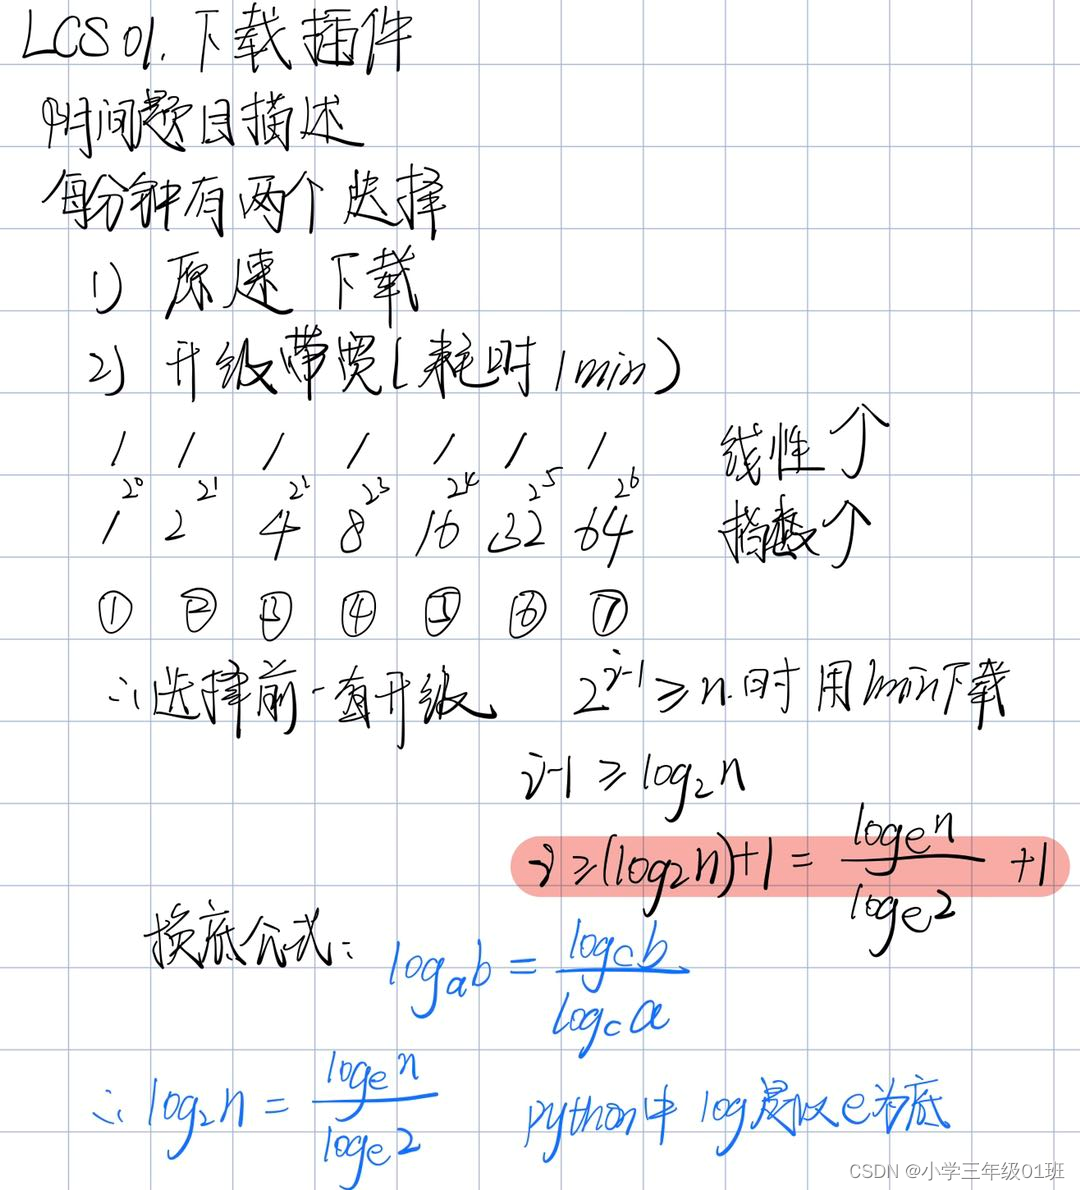 LCS 01. 下载插件
时间题目描述
每分钟有两个选择
1) 原速下载
2) 升级带宽(耗时1min)
1 1 1 1 1 1 1 线性个
2⁰ 2¹ 2² 2³ 2⁴ 2⁵ 2⁶
1 2 4 8 16 32 64 指数个
① ② ③ ④ ⑤ ⑥ ⑦
∴选择前一直升级 2^(i-1) ≥ n 时用1min下载
i-1 ≥ log₂n
i ≥ (log₂n)+1 = logₑn / logₑ2 + 1
换底公式: logₐb = log_c b / log_c a
∴ log₂n = logₑn / logₑ2 python中 log是以e为底
CSDN @小学三年级01班